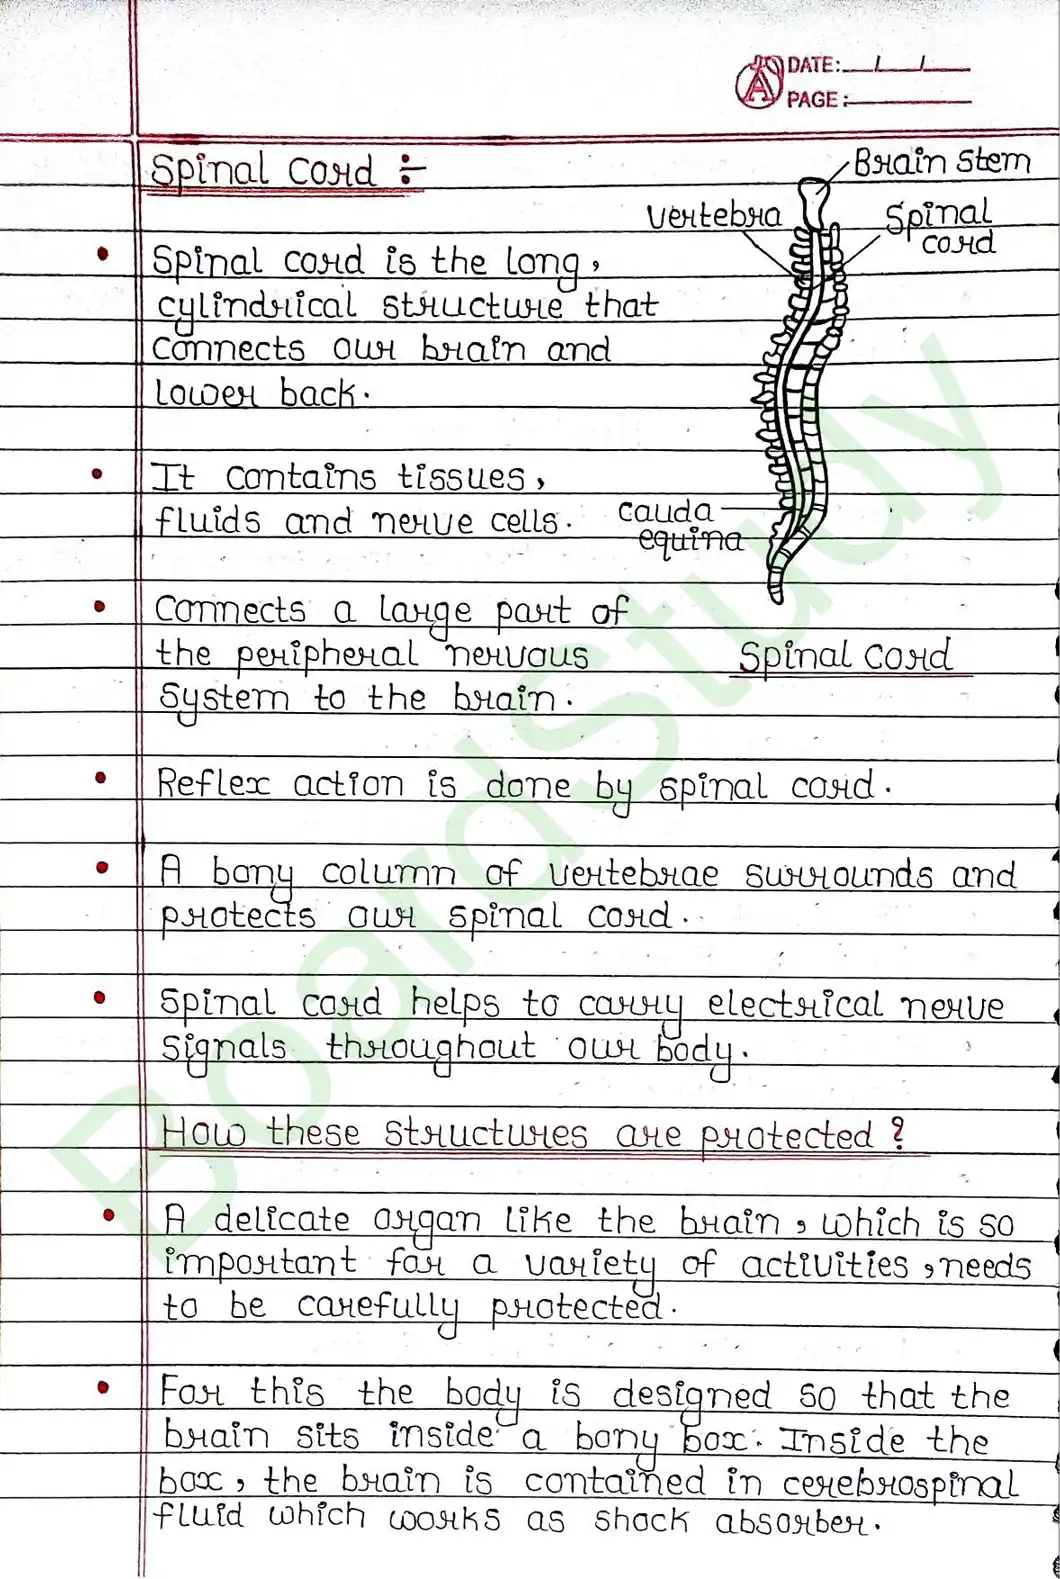 DATE:
PAGE:
Spinal Cord :-
Brain Stem
Vertebra
Spinal
cord
• Spinal cord is the long,
cylindrical structure that
connects our brain and
lower back.
• It contains tissues,
fluids and nerve cells.
cauda
equina
• Connects a large part of
the peripheral nervous
system to the brain.
Spinal Cord
• Reflex action is done by spinal cord.
• A bony column of vertebrae surrounds and
protects our spinal cord.
• Spinal cord helps to carry electrical nerve
signals throughout our body.
How these structures are protected ?
• A delicate organ like the brain, which is so
important for a variety of activities, needs
to be carefully protected.
• For this the body is designed so that the
brain sits inside a bony box. Inside the
box, the brain is contained in cerebrospinal
fluid which works as shock absorber.
BoardStudy